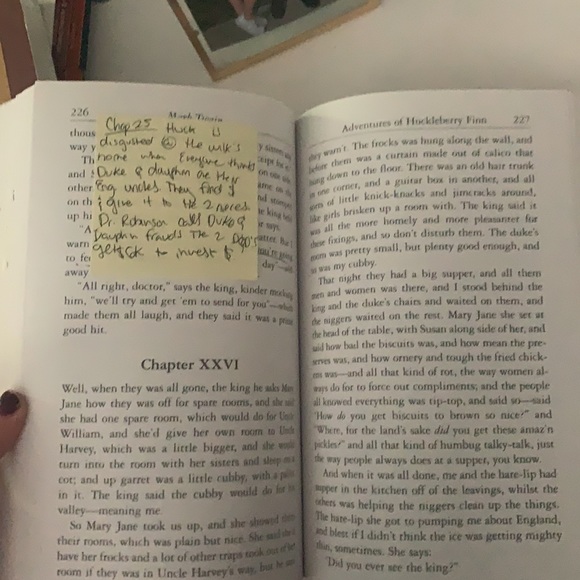 226
Mark Twain
Chap 25 Huck is
disgusted @ the Wilk's
home when Everyone thinks
Duke & dauphin are they
Eng uncles. They find $
& give it to the 2 neices
Dr. Robinson calls Duke &
Dauphin frauds The 2
gets ok to invest $
thous
way y
Th
and
other
on th
up hi
"A
warn
to
away
day"
"All right, doctor," says the king, kinder mocking
him, "we'll try and get 'em to send for you"—which
made them all laugh, and they said it was a prime
good hit.
Chapter XXVI
Well, when they was all gone, the king he asks Mary
Jane how they was off for spare rooms, and she said
she had one spare room, which would do for Uncle
William, and she'd give her own room to Uncle
Harvey, which was a little bigger, and she would
turn into the room with her sisters and sleep on a
cot; and up garret was a little cubby, with a pallet
in it. The king said the cubby would do for his
valley—meaning me.
So Mary Jane took us up, and she showed them
their rooms, which was plain but nice. She said she'd
have her frocks and a lot of other traps took out of her
room if they was in Uncle Harvey's way, but he said
Adventures of Huckleberry Finn 227
they warn't. The frocks was hung along the wall, and
before them was a curtain made out of calico that
hung down to the floor. There was an old hair trunk
in one corner, and a guitar box in another, and all
sorts of little knick-knacks and jimcracks around,
like girls brisken up a room with. The king said it
was all the more homely and more pleasanter for
these fixings, and so don't disturb them. The duke's
room was pretty small, but plenty good enough, and
so was my cubby.
That night they had a big supper, and all them
men and women was there, and I stood behind the
king and the duke's chairs and waited on them, and
the niggers waited on the rest. Mary Jane she set at
the head of the table, with Susan along side of her, and
said how bad the biscuits was, and how mean the pre-
serves was, and how ornery and tough the fried chick-
ens was—and all that kind of rot, the way women al-
ways do for to force out compliments; and the people
all knowed everything was tip-top, and said so—said
"How do you get biscuits to brown so nice?" and
"Where, for the land's sake did you get these amaz'n
pickles?" and all that kind of humbug talky-talk, just
the way people always does at a supper, you know.
And when it was all done, me and the hare-lip had
supper in the kitchen off of the leavings, whilst the
others was helping the niggers clean up the things.
The hare-lip she got to pumping me about England,
and blest if I didn't think the ice was getting mighty
thin, sometimes. She says:
"Did you ever see the king?"